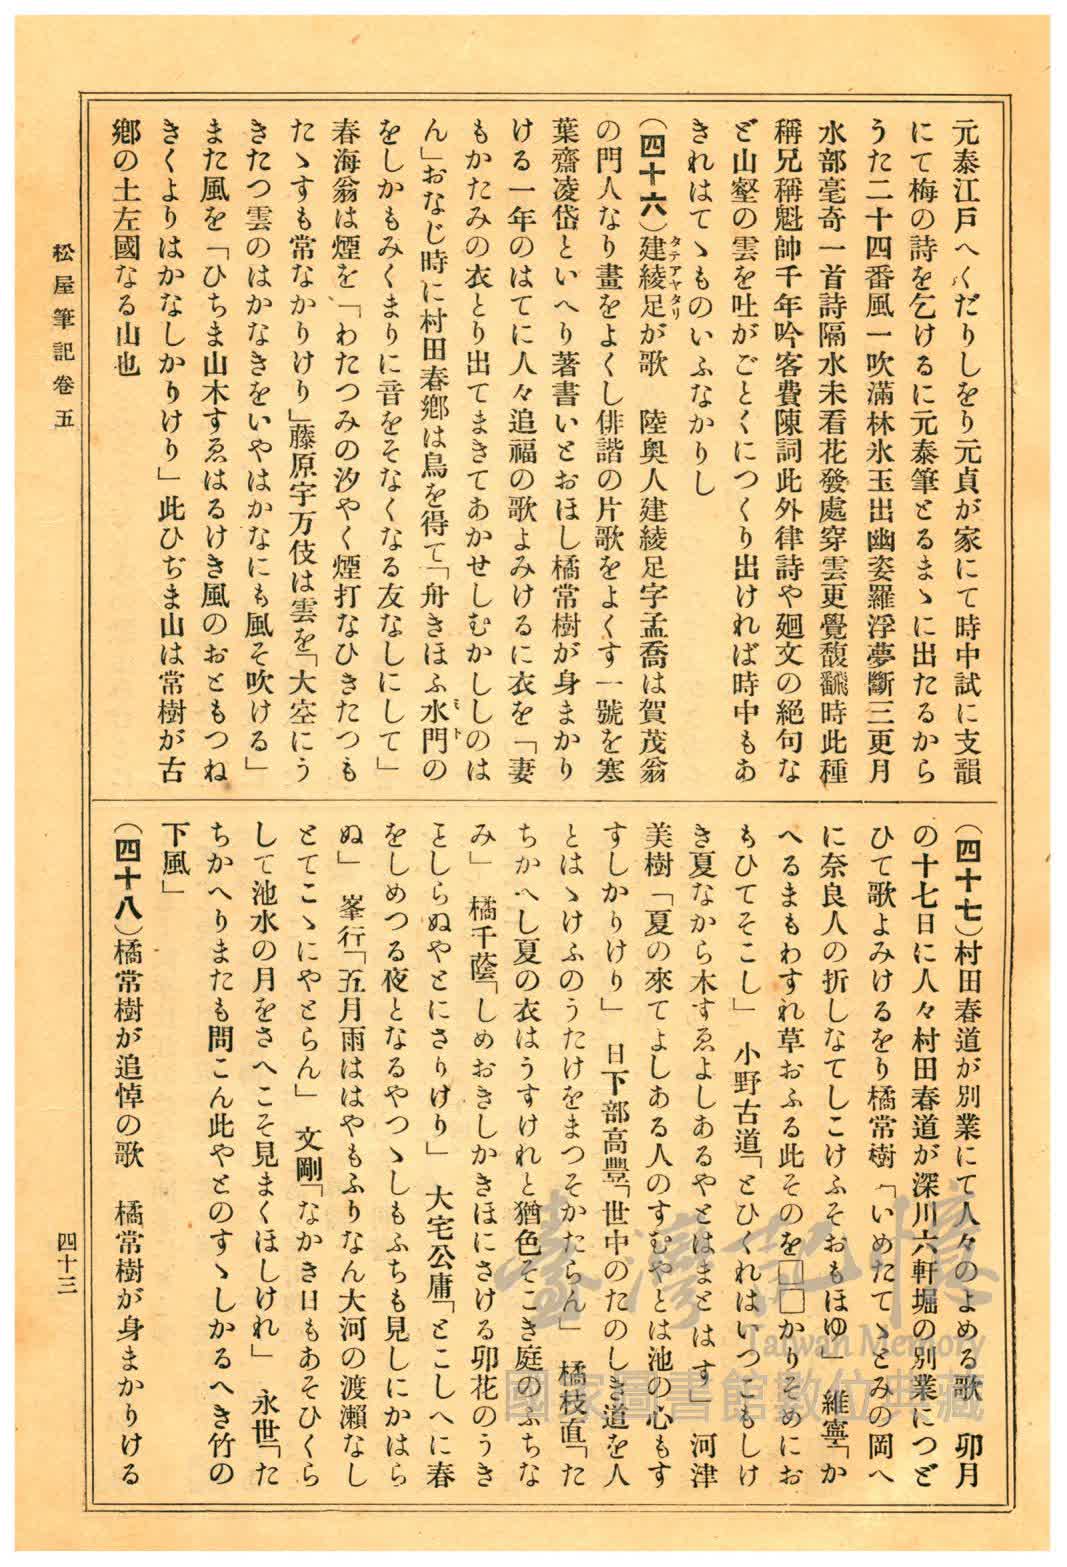 元泰江戸へくだりしをり元貞が家にて時中試に支韻
にて梅の詩を乞けるに元泰筆とるまゝに出たるから
うた二十四番風一吹滿林氷玉出幽姿羅浮夢斷三更月
水部毫奇一首詩隔水未看花發處穿雲更覺馥飜時此種
稱兄稱魁帥千年吟客費陳詞此外律詩や廻文の絕句な
ど山壑の雲を吐がごとくにつくり出ければ時中もあ
きれはてゝものいふなかりし
（四十六）建綾足が歌　陸奥人建綾足字孟喬は賀茂翁
タテアヤタリ
の門人なり畫をよくし俳諧の片歌をよくす一號を寒
葉齋凌岱といへり著書いとおほし橘常樹が身まかり
ける一年のはてに人々追福の歌よみけるに衣を「妻
もかたみの衣とり出てまきてあかせしむかししのは
ん」おなじ時に村田春鄉は鳥を得て「舟きほふ水門の
ミト
をしかもみくまりに音をそなくなる友なしにして」
春海翁は煙を「わたつみの汐やく煙打なひきたつも
たゝすも常なかりけり」藤原宇万伎は雲を「大空にう
きたつ雲のはかなきをいやはかなにも風そ吹ける」
また風を「ひちま山木すゑはるけき風のおともつね
きくよりはかなしかりけり」此ひぢま山は常樹が古
鄉の土左國なる山也
（四十七）村田春道が別業にて人々のよめる歌　卯月
の十七日に人々村田春道が深川六軒堀の別業につど
ひて歌よみけるをり橘常樹「いめたてゝとみの岡へ
に奈良人の折しなてしこけふそおもほゆ」　維寧「か
へるまもわすれ草おふる此そのを□□かりそめにお
もひてそこし」　小野古道「とひくれはいつこもしけ
き夏なから木すゑよしあるやとはまとはす」　河津
美樹「夏の來てよしある人のすむやとは池の心もす
すしかりけり」　日下部高豐「世中のたのしき道を人
とはゝけふのうたけをまつそかたらん」　橘枝直「た
ちかへし夏の衣はうすけれと猶色そこき庭のふちな
み」　橘千蔭「しめおきしかきほにさける卯花のうき
ことしらぬやとにさりけり」　大宅公庸「とこしへに春
をしめつる夜となるやつゝしもふちも見しにかはら
ぬ」　峯行「五月雨ははやもふりなん大河の渡瀨なし
とてこゝにやとらん」　文剛「なかき日もあそひくら
して池水の月をさへこそ見まくほしけれ」　永世「た
ちかへりまたも問こん此やとのすゝしかるへき竹の
下風」
（四十八）橘常樹が追悼の歌　橘常樹が身まかりける
松屋筆記卷五
四十三
臺灣記憶
Taiwan Memory
國家圖書館數位典藏